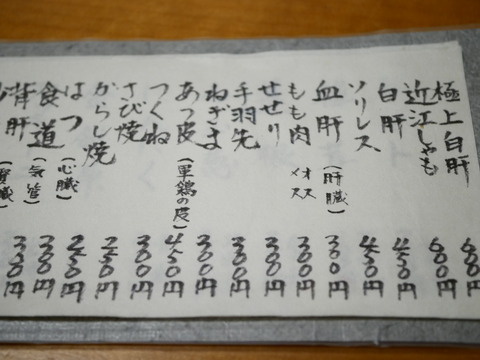 極上白肝
近江しゃも
白肝
ソリレス
血肝(肝臓)
もも肉 オス メス
せせり
手羽先
ねぎま
あつ皮(軍鶏の皮)
つくね
さび焼
からし焼
はつ(心臓)
食道(気管)
背肝(腎臓)
600円
600円
450円
450円
300円
300円
300円
300円
300円
450円
300円
250円
250円
300円
330円